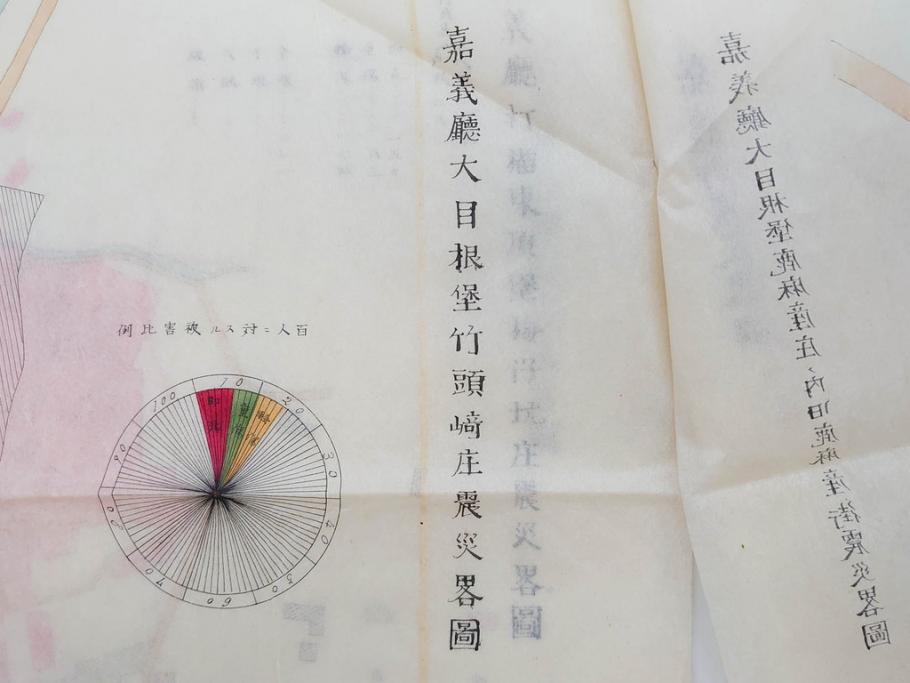 嘉義廳大目根堡鹿麻產庄ノ內旧鹿麻產街震災畧圖
義廳打猫東頂堡梅仔坑庄震災畧圖
嘉義廳大目根堡竹頭﨑庄震災畧圖
百人ニ対スル被害比例
10
20
30
40
50
60
70
80
90
100
即死